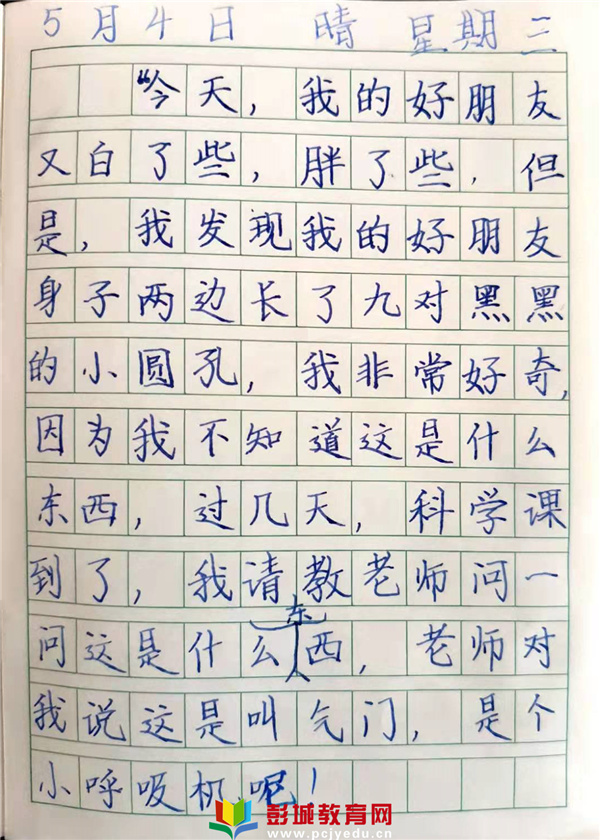 5月4日 晴 星期三
“今天，我的好朋友
又白了些，胖了些，但
是，我发现我的好朋友
身子两边长了九对黑黑
的小圆孔，我非常好奇，
因为我不知道这是什么
东西，过几天，科学课
到了，我请教老师问一
问这是什么东西，老师对
我说这是叫气门，是个
小呼吸机呢！
彭城教育网
www.pcjyedu.cn